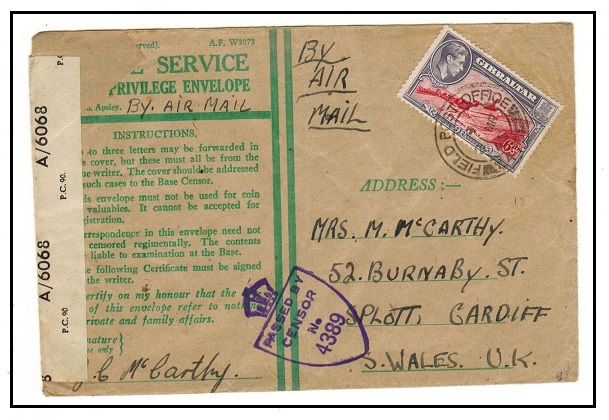 served). A.F. W3078
E SERVICE
PRIVILEGE ENVELOPE
Apsley. BY. AIR MAIL
INSTRUCTIONS.
to three letters may be forwarded in
s cover, but these must all be from the
e writer. The cover should be addressed
such cases to the Base Censor.
is envelope must not be used for coin
valuables. It cannot be accepted for
gistration.
orrespondence in this envelope need not
censored regimentally. The contents
liable to examination at the Base.
e following Certificate must be signed
the writer.
ertify on my honour that the
of this envelope refer to
rivate and family affairs.
gnature
e only)
C McCarthy.
P.C. 90.
A/6068
P.C. 90.
A/6068
P.C. 90
BY
AIR
MAIL
GIBRALTAR
6d
FIELD OFFICE
ADDRESS :—
MRS. M. McCARTHY.
52. BURNABY. ST.
SPLOTT, CARDIFF
S. WALES. U.K.
PASSED BY
CENSOR
No
4389